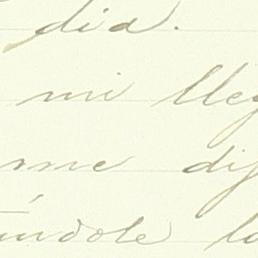 dia.
mi lleg
me dij
ándole lo